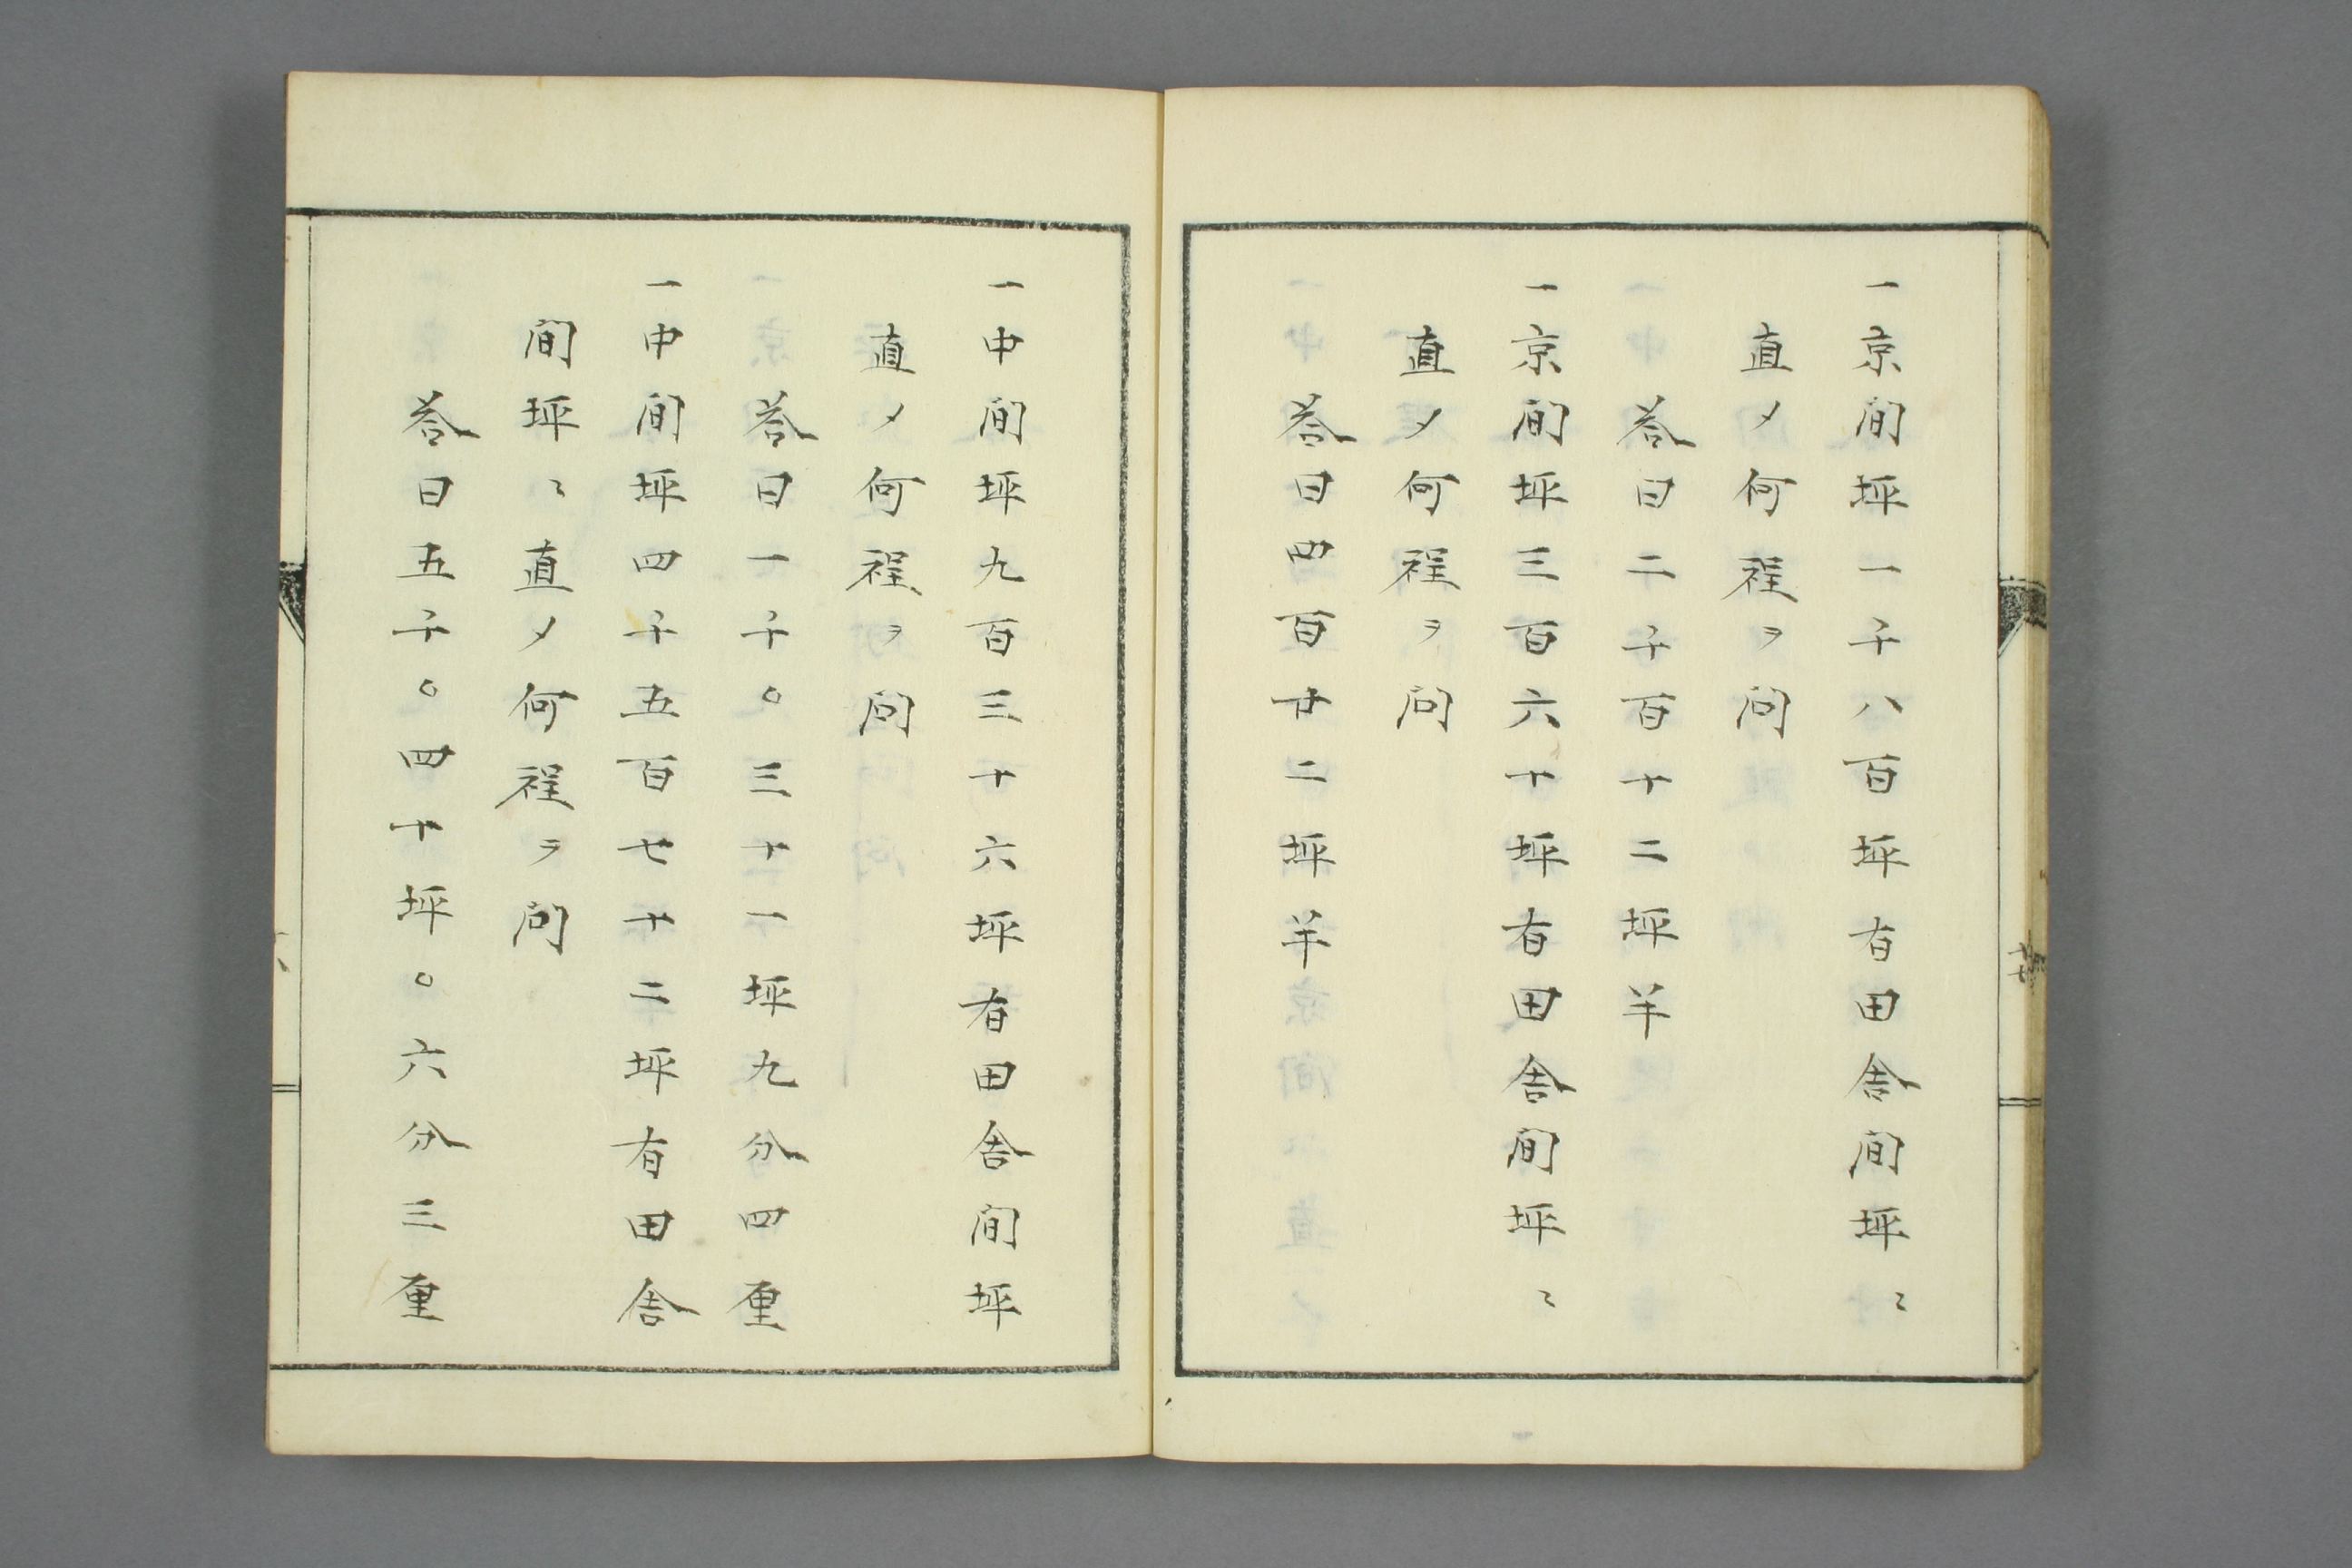 一京间坪一千八百坪有田舎间坪ニ
直〆何程ヲ问
答曰二千百十二坪半
一京间坪三百六十坪有田舎间坪ニ
直〆何程ヲ问
答曰四百廿二坪半
一中间坪九百三十六坪有田舎间坪
直〆何程ヲ问
答曰一千〇三十一坪九分四厘
一中间坪四千五百七十二坪有田舎
间坪ニ直〆何程ヲ问
答曰五千〇四十坪〇六分三厘